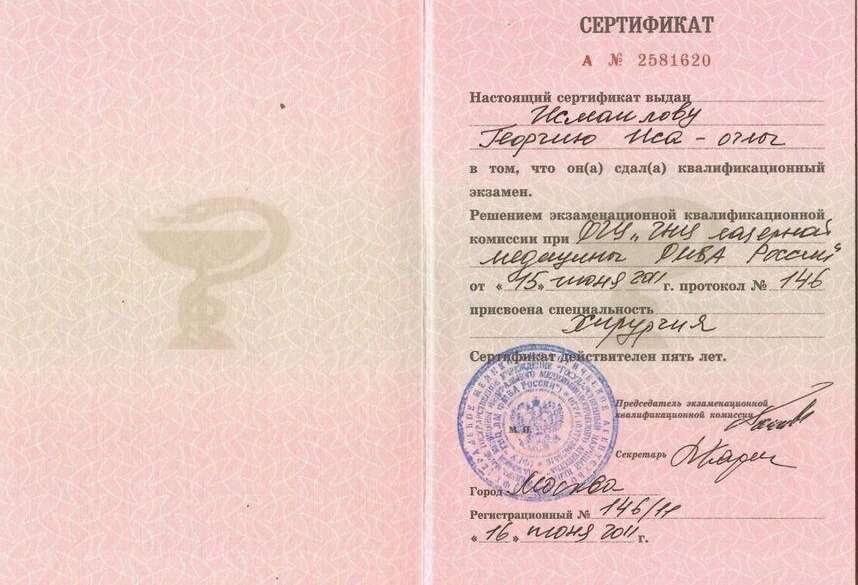 СЕРТИФИКАТ
А № 2581620
Настоящий сертификат выдан
Исмаилову
Георгию Иса-оглы
в том, что он(а) сдал(а) квалификационный
экзамен.
Решением экзаменационной квалификационной
комиссии при ФГУ „ГНЦ лазерной
медицины ФМБА России"
от «15» июня 2011 г. протокол № 146
присвоена специальность
Хирургия
Сертификат действителен пять лет.
Председатель экзаменационной
квалификационной комиссии
М. П.
Секретарь
Город Москва
Регистрационный № 146/11
«16» июня 2011 г.